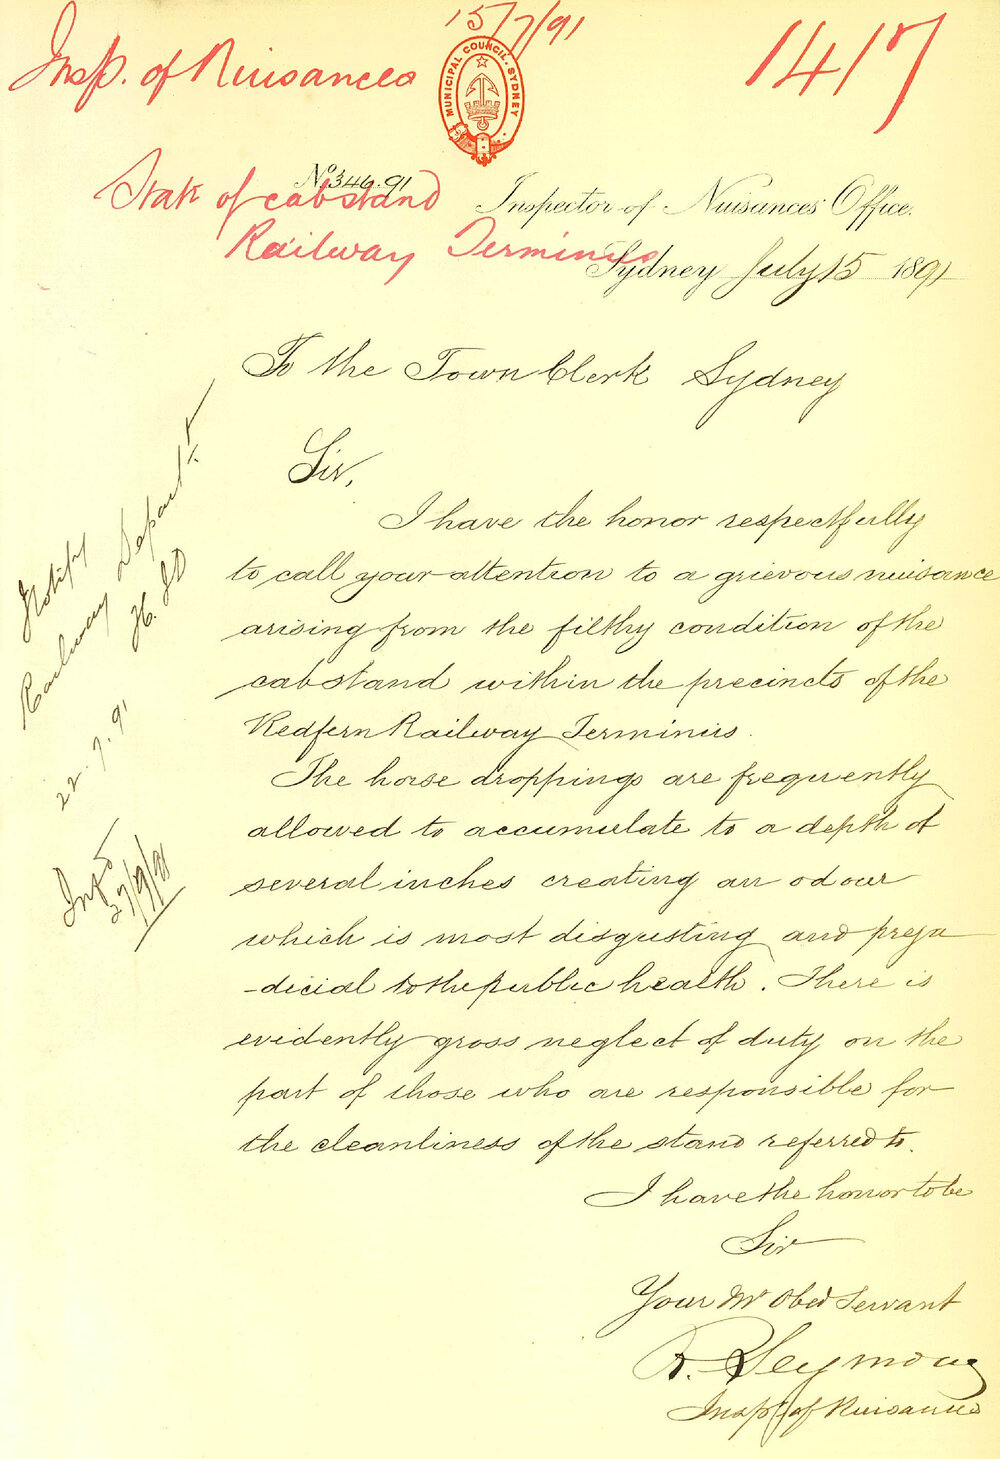 15/7/91
Insp. of Nuisances
1417
MUNICIPAL COUNCIL. SYDNEY
No 346.91
State of cabstand
Railway Terminus
Inspector of Nuisances' Office.
Sydney July 15 1891
To the Town Clerk Sydney
Sir,
I have the honor respectfully
to call your attention to a grievous nuisance
arising from the filthy condition of the
cabstand within the precincts of the
Redfern Railway Terminus.
The horse droppings are frequently
allowed to accumulate to a depth of
several inches creating an odour
which is most disgusting and preju
-dicial to the public health. There is
evidently gross neglect of duty on the
part of those who are responsible for
the cleanliness of the stand referred to.
I have the honor to be
Sir
Your Mt Obed Servant
R. Seymour
Inspr of Nuisances
Notify
Railway Departt
22.7.91
27/9/91